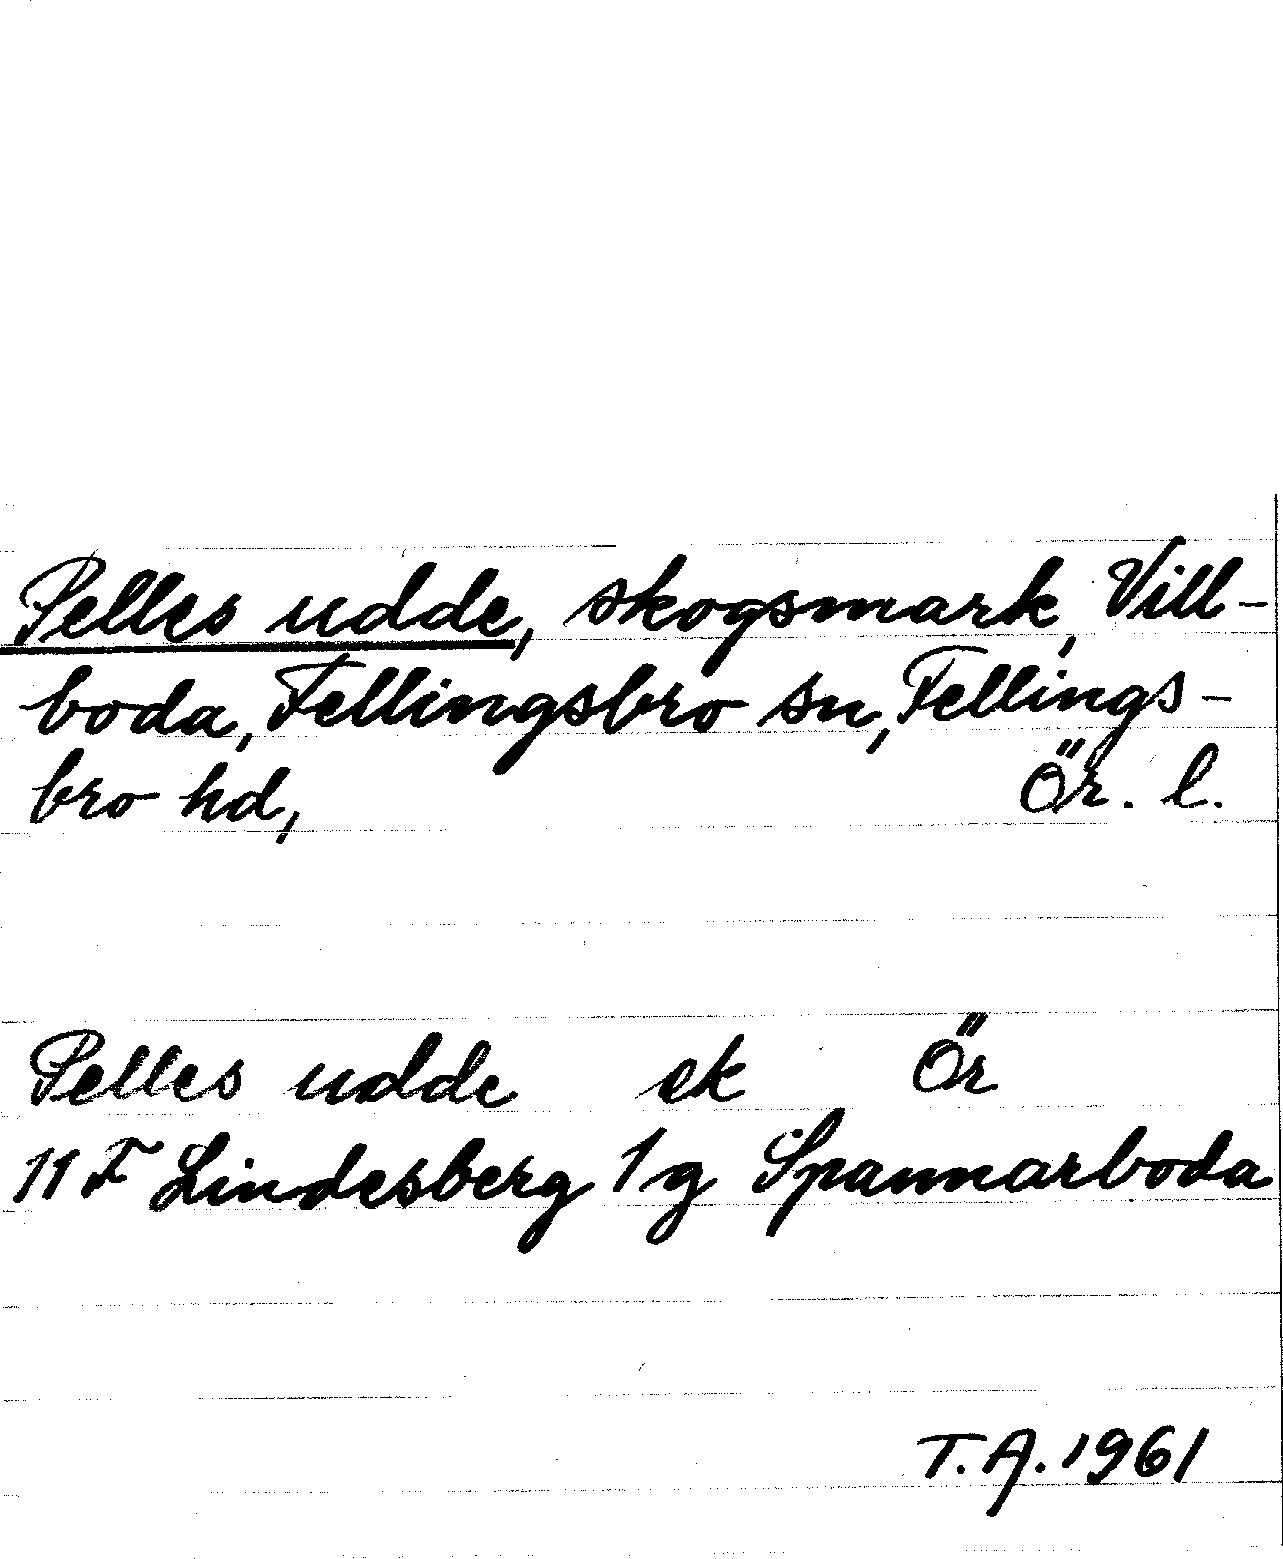 Pelles udde, skogsmark, Vill-
boda, Fellingsbro sn, Fellings-
bro hd, Ör. l.
Pelles udde ek Ör
11 F Lindesberg 1 g Spannarboda
T.A. 1961